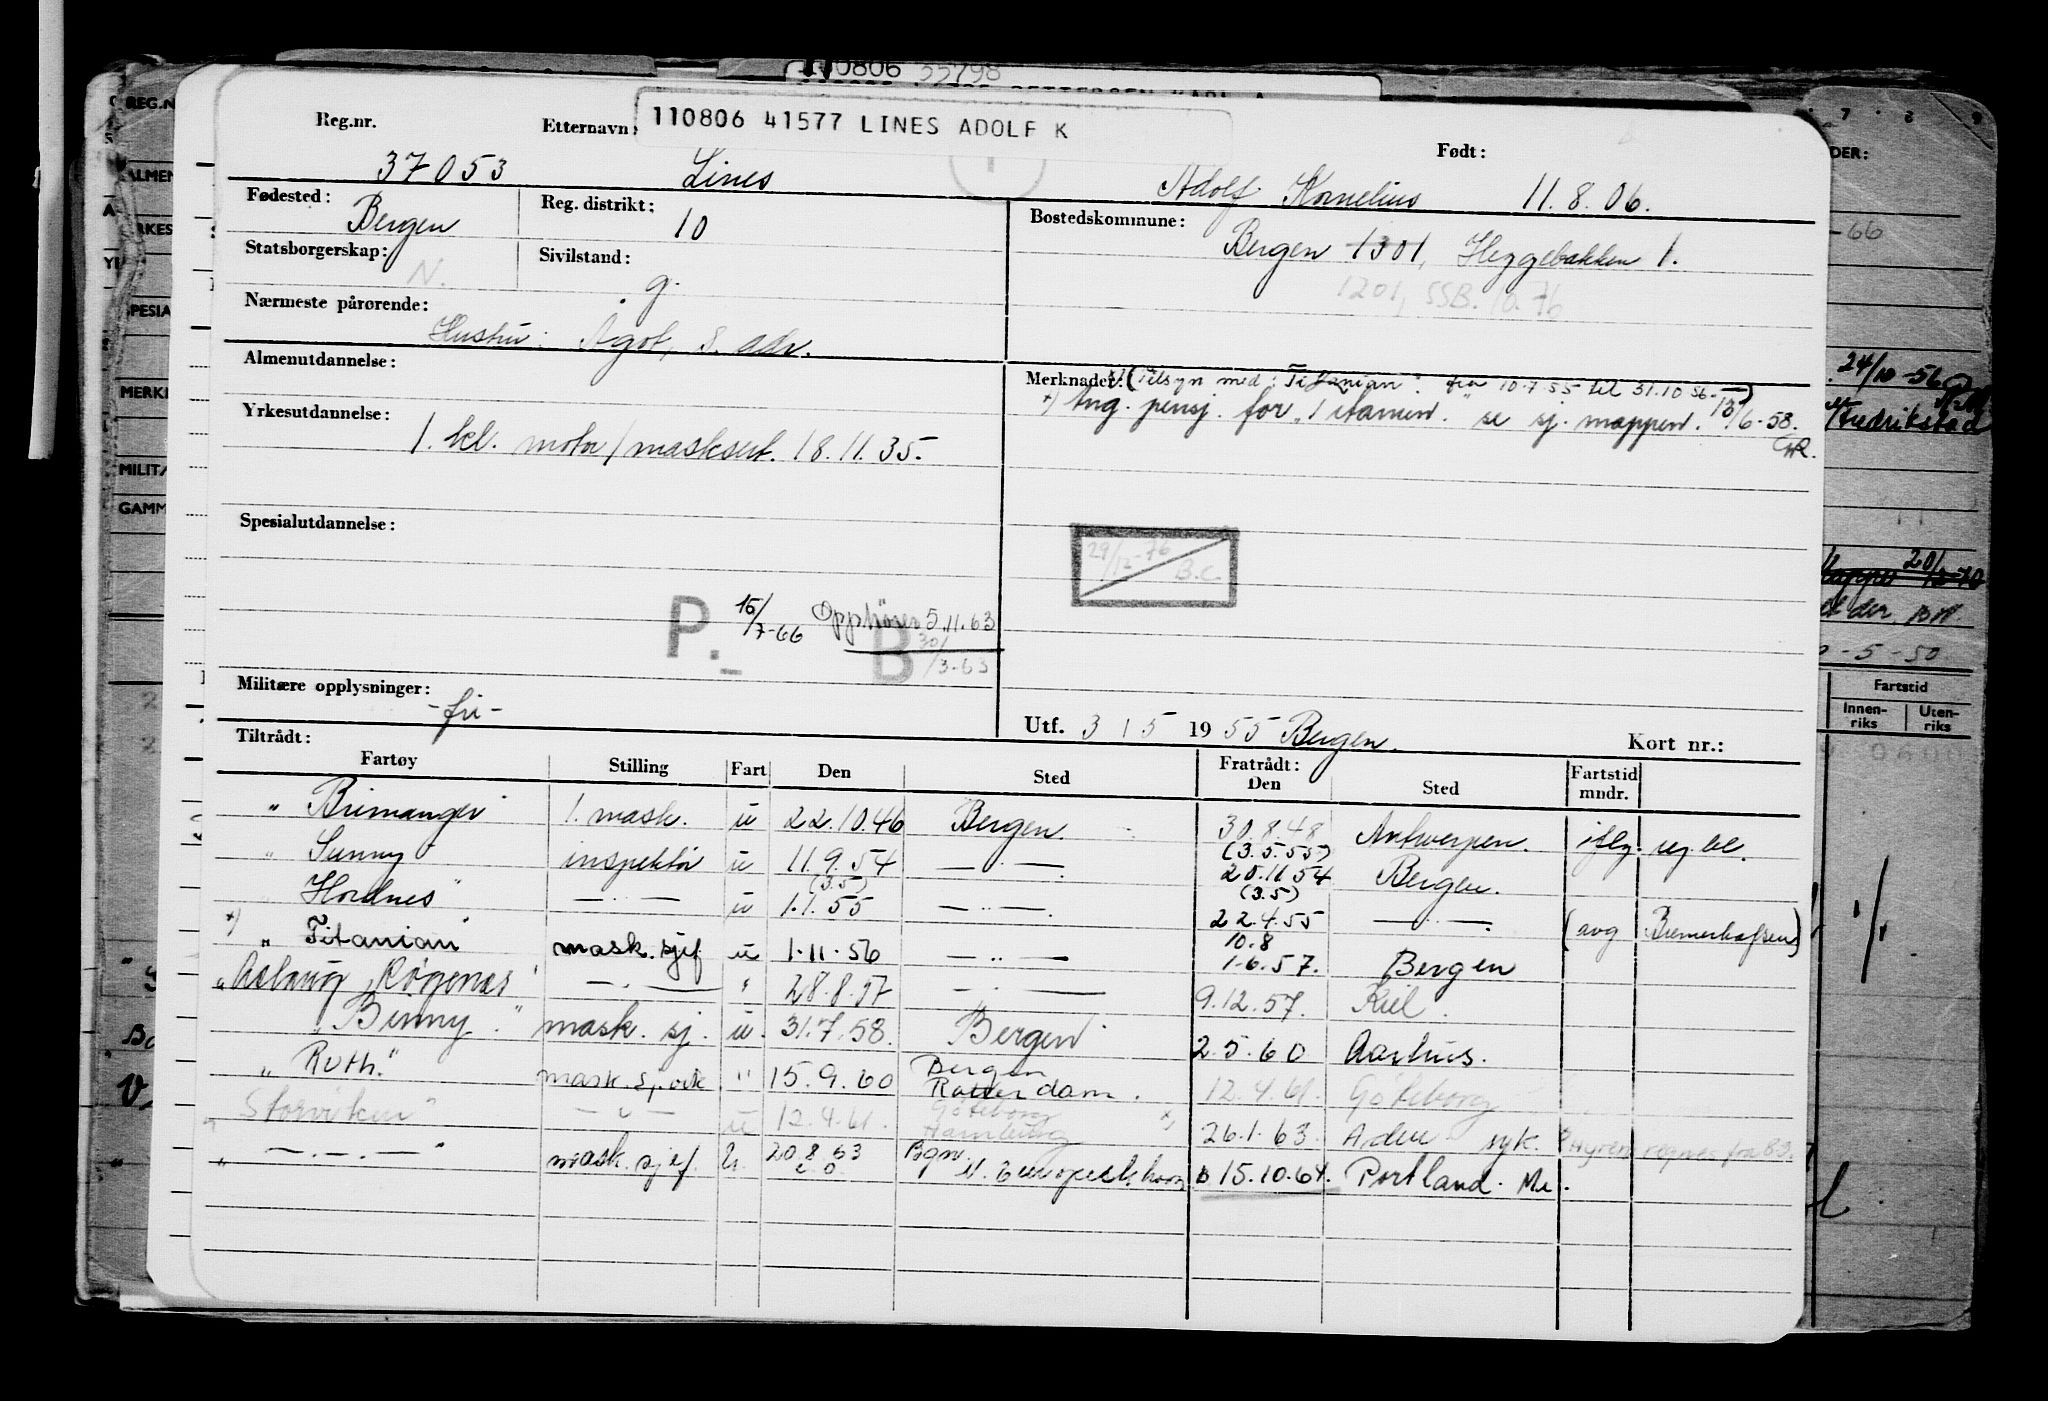 110806 22798
Reg.nr. Etternavn: 110806 41577 LINES ADOLF K Født:
37053 Lines Adolf Kornelius 11.8.06.
Fødested: Bergen Reg. distrikt: 10 Bostedskommune:
Bergen 1301, Heggebakken 1.
Statsborgerskap: N. Sivilstand: g.
1201, SSB. 10.76
Nærmeste pårørende:
Hustru: Ågot, s. adr.
Almenutdannelse:
Merknader: x) (Tilsyn med: "Titanian" fra 10.7.55 til 31.10 56-)
x) Ang. pensj. for se sj. mappen. 13/6-58.
Yrkesutdannelse:
1. kl. motor/masksert. 18.11.35.
Spesialutdannelse:
29/12-76 B.C.
P. 15/7-66 Opphører 5.11.63
B 30/3-63
Militære opplysninger: -fri-
Utf. 3 / 5 19 55 Bergen. Kort nr.:
Tiltrådt: Fratrådt:
Fartøy Stilling Fart Den Sted Den Sted Fartstid mndr.
"Brimanger" 1. mask. u 22.10.46 Bergen 30.8.48 Antwerpen. iflg. reg. bl.
(3.5.55)
"Sunny" inspektør u 11.9.54 — " — 20.11.54 Bergen.
(3.5) (3.5)
"Hordnes" — " — u 1.1.55 — " — 22.4.55 — " — (avg Bremerhafen)
10.8
x) "Titanian" mask. sjef u 1.11.56 — " — 1.6.57. Bergen
"Aslaug Røgenæs" — " — " 28.8.57 — " — 9.12.57. Kiel.
"Binny" mask. sj. u. 31.7.58. Bergen 2.5.60 Aarhus.
"Ruth" mask. sj. " 15.9.60 Bergen Rotterdam. 12.4.61. Göteborg
"Storviken" — " — u 12.4.61. Göteborg Hamburg x) 26.1.63. Arden syk. x) Hyren regnes fra
" — " — " mask. sjef U. 20.8.63 Bgn. 15.10.64. Portland. Me.
24/10-56
Fredrikstad
20/12-70
-5-50
-66
Fartstid
Innen-riks Uten-riks
REG.N
MERK
MILIT
GAMM